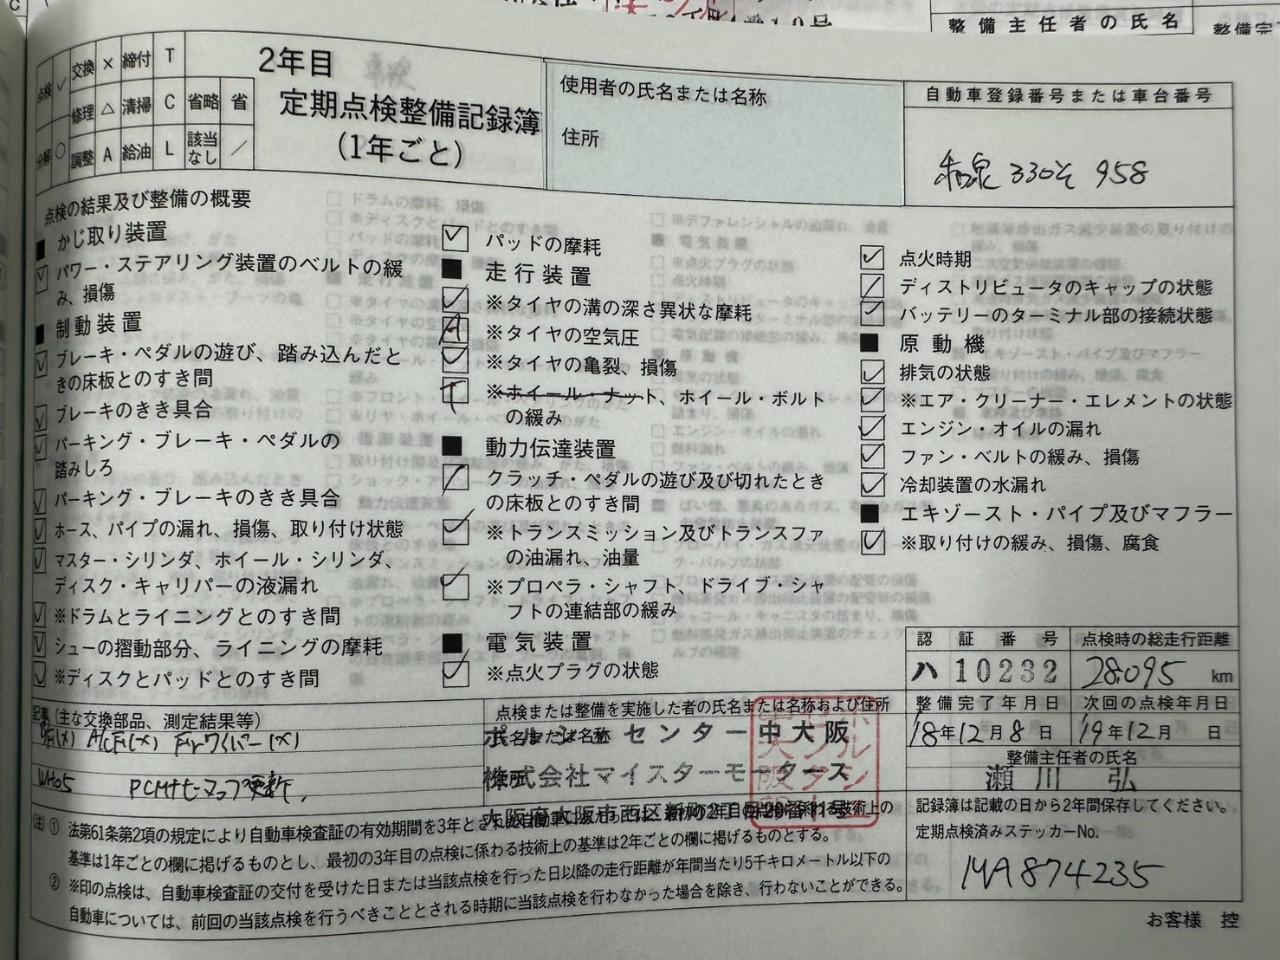 整備主任者の氏名
整備完
点検 ✓ 交換 × 締付 T
修理 △ 清掃 C 省略 省
分解 ○ 調整 A 給油 L 該当なし ／
2年目
定期点検整備記録簿
(1年ごと)
使用者の氏名または名称
住所
自動車登録番号または車台番号
和泉 330そ 958
点検の結果及び整備の概要
■ かじ取り装置
パワー・ステアリング装置のベルトの緩
み、損傷
■ 制動装置
ブレーキ・ペダルの遊び、踏み込んだと
きの床板とのすき間
ブレーキのきき具合
パーキング・ブレーキ・ペダルの
踏みしろ
パーキング・ブレーキのきき具合
ホース、パイプの漏れ、損傷、取り付け状態
マスター・シリンダ、ホイール・シリンダ、
ディスク・キャリパーの液漏れ
※ドラムとライニングとのすき間
シューの摺動部分、ライニングの摩耗
※ディスクとパッドとのすき間
パッドの摩耗
■ 走行装置
※タイヤの溝の深さ異状な摩耗
A ※タイヤの空気圧
※タイヤの亀裂、損傷
T ※ホイール・ナット、ホイール・ボルト
の緩み
■ 動力伝達装置
クラッチ・ペダルの遊び及び切れたとき
の床板とのすき間
※トランスミッション及びトランスファ
の油漏れ、油量
※プロペラ・シャフト、ドライブ・シャ
フトの連結部の緩み
■ 電気装置
※点火プラグの状態
点火時期
ディストリビュータのキャップの状態
バッテリーのターミナル部の接続状態
■ 原動機
排気の状態
※エア・クリーナー・エレメントの状態
エンジン・オイルの漏れ
ファン・ベルトの緩み、損傷
冷却装置の水漏れ
■ エキゾースト・パイプ及びマフラー
※取り付けの緩み、損傷、腐食
認証番号 点検時の総走行距離
ハ10232 28095 km
整備完了年月日 次回の点検年月日
'18年12月8日 '19年12月 日
整備主任者の氏名
瀬川 弘
記録簿は記載の日から2年間保存してください。
定期点検済みステッカーNo.
MA874235
記事 (主な交換部品、測定結果等)
B/F(×) A/CF(×) Frワイパー(×)
WH05 PCMナビマップ更新、
点検または整備を実施した者の氏名または名称および住所
氏名または名称
ポルシェセンター中大阪
住所
株式会社マイスターモータース
大阪府大阪市西区新町2丁目20番11号
(注) ① 法第61条第2項の規定により自動車検査証の有効期間を3年とされた自動車にあっては、最初の2年目の点検に係わる技術上の
基準は1年ごとの欄に掲げるものとし、最初の3年目の点検に係わる技術上の基準は2年ごとの欄に掲げるものとする。
② ※印の点検は、自動車検査証の交付を受けた日または当該点検を行った日以降の走行距離が年間当たり5千キロメートル以下の
自動車については、前回の当該点検を行うべきこととされる時期に当該点検を行わなかった場合を除き、行わないことができる。
お客様 控